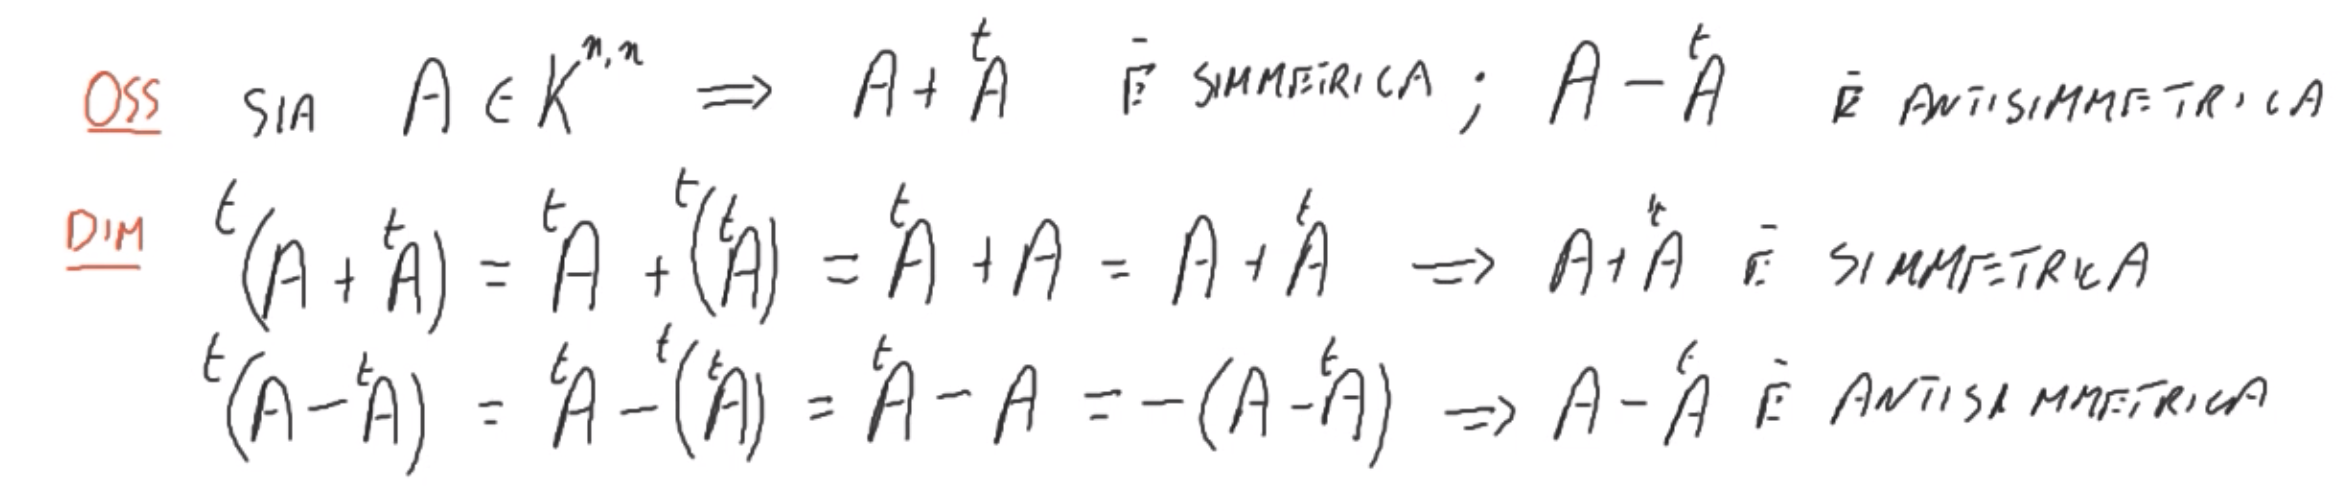 OSS SIA A ∈ K^{n,n} ⟹ A + ᵗA È SIMMETRICA ; A - ᵗA È ANTISIMMETRICA
DIM ᵗ(A + ᵗA) = ᵗA + ᵗ(ᵗA) = ᵗA + A = A + ᵗA ⟹ A + ᵗA È SIMMETRICA
ᵗ(A - ᵗA) = ᵗA - ᵗ(ᵗA) = ᵗA - A = -(A - ᵗA) ⟹ A - ᵗA È ANTISIMMETRICA